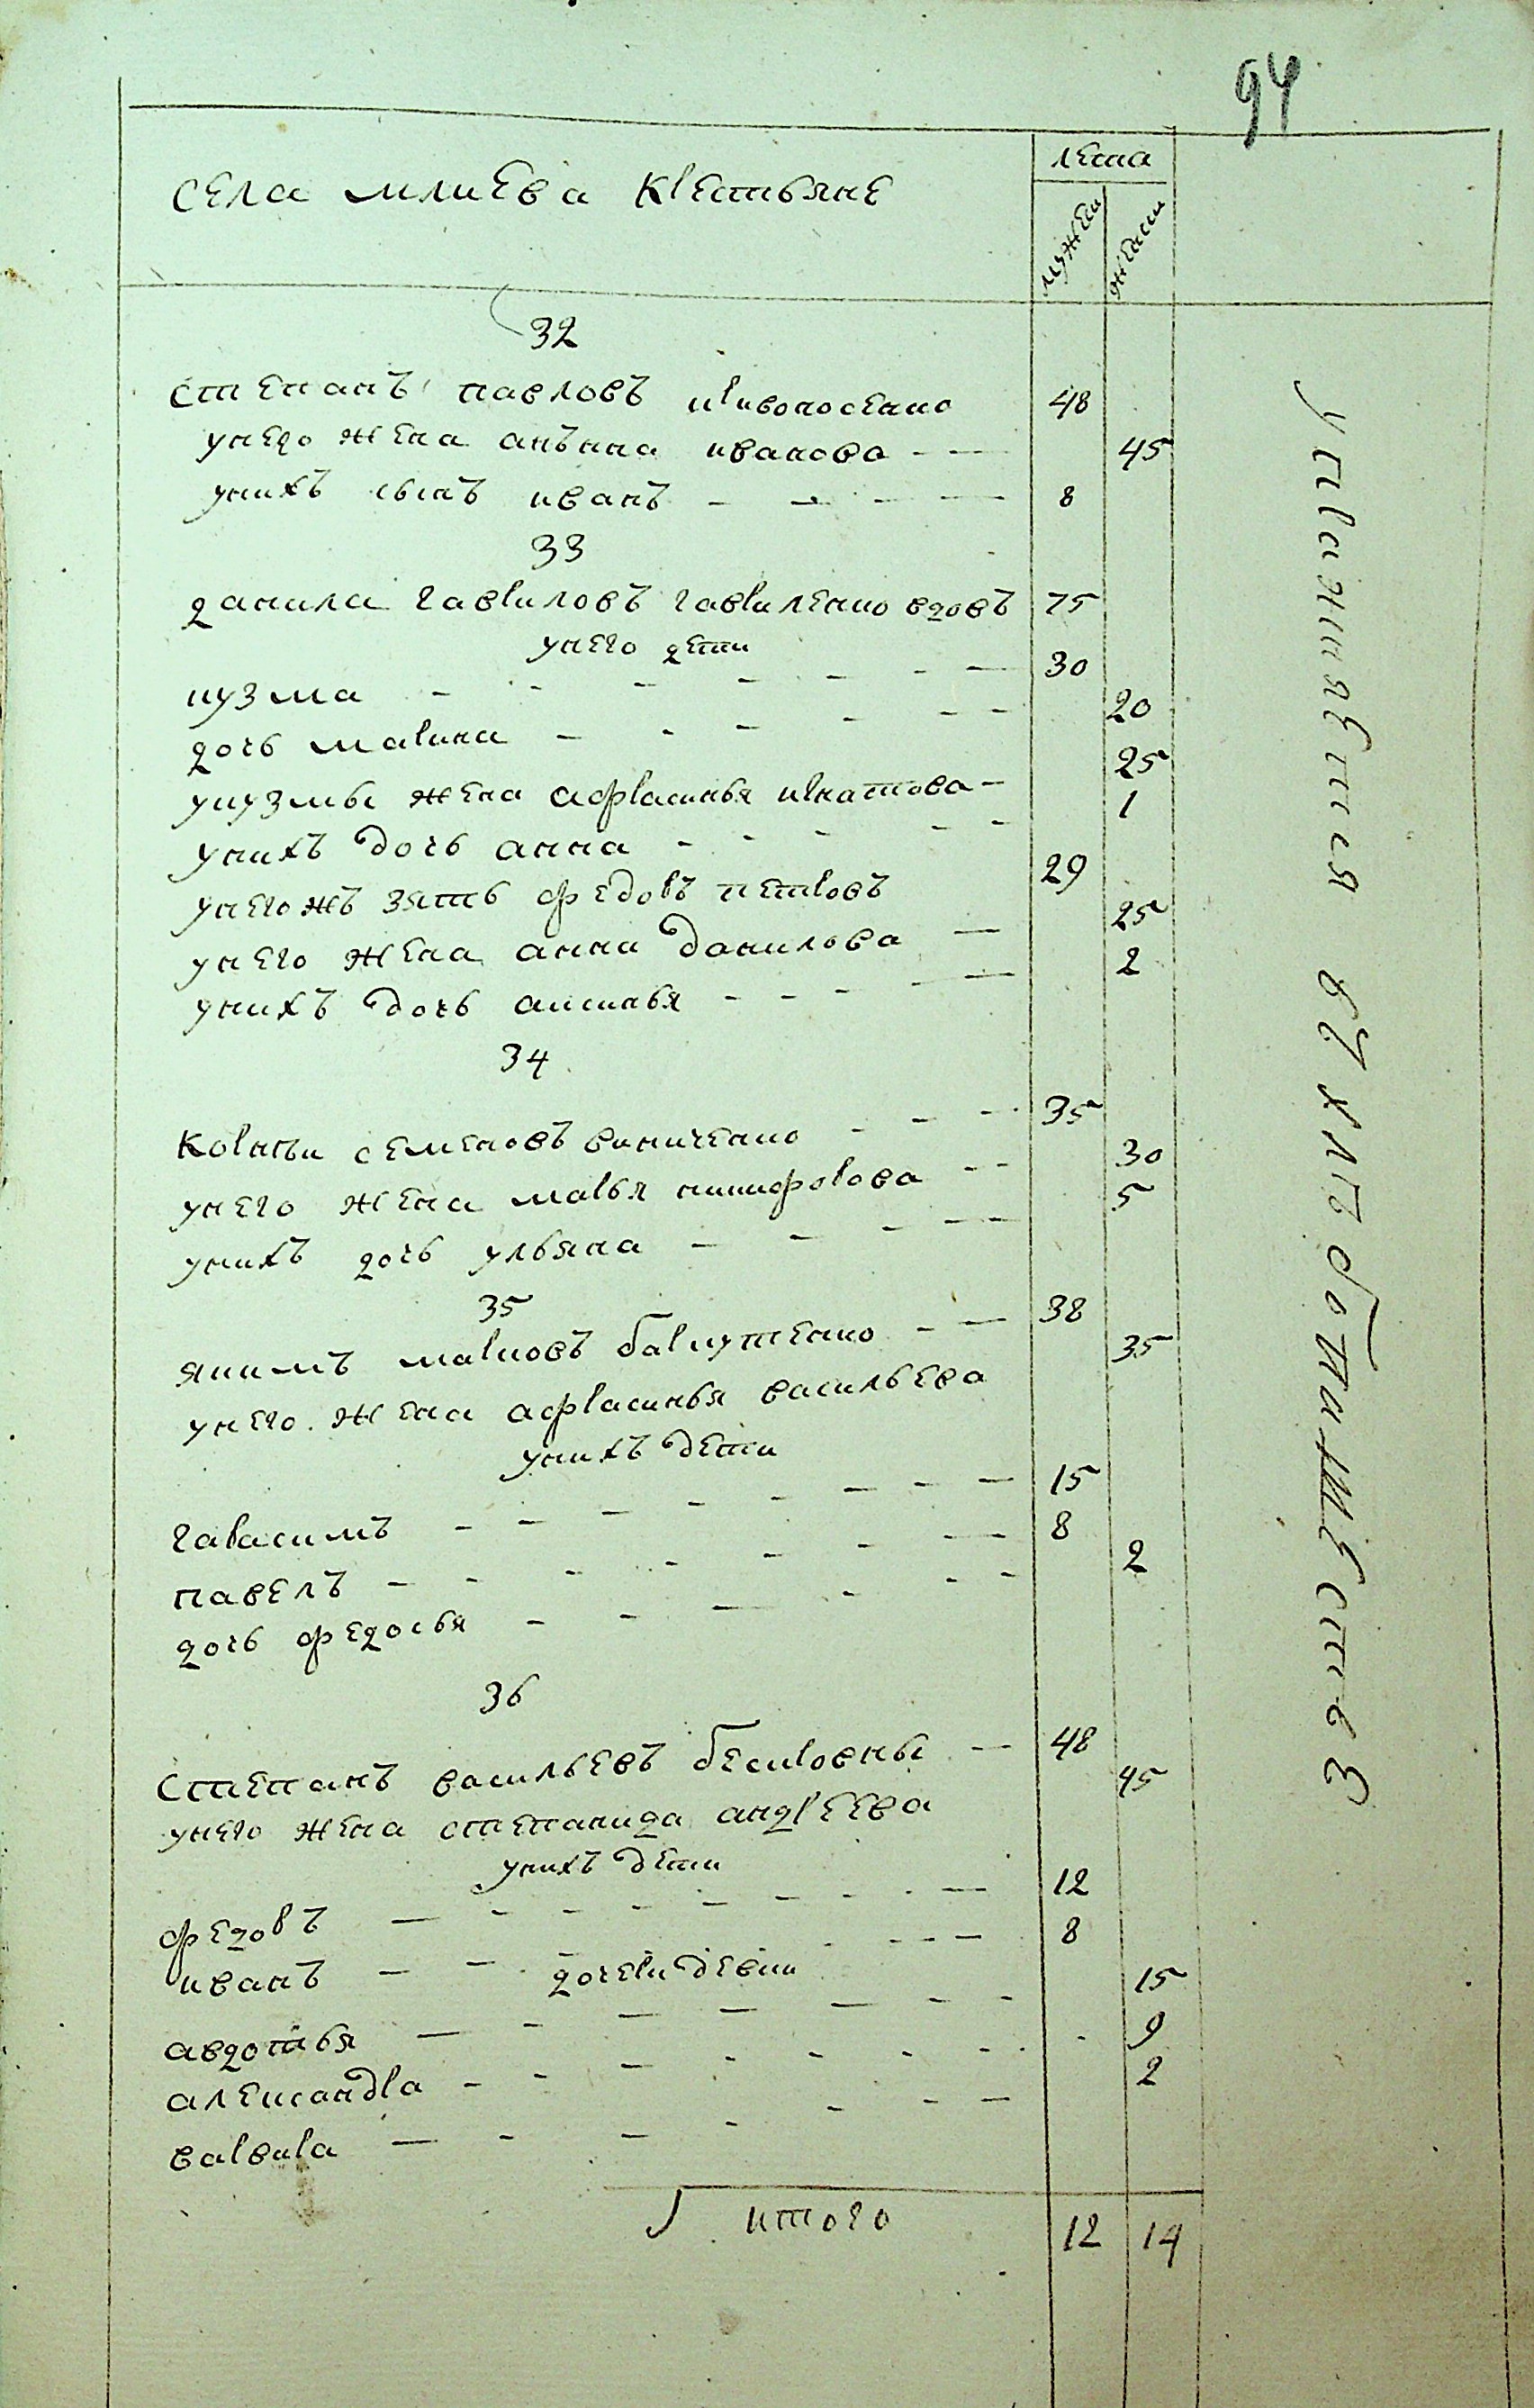 94
села млиева крестьяне
лета
мужеи
женски
32
степанъ павловъ кривоносенко 48
унего жена анънна иванова 45
унихъ сынъ иванъ 8
33
данила гавриловъ гавриленко вдовъ 75
унего дети
кузма 30
дочь марина 20
укузмы жена афрасинья игнатова 25
унихъ дочь анна 1
унегожъ зять федоръ петровъ 29
унего жена анна данилова 25
унихъ дочь аксинья 2
34
корнѣи семеновъ винниченко 35
унего жена марья никифорова 30
унихъ дочь ульяна 5
35
якимъ марковъ баркутенко 38
унего жена афрасинья васильева 35
унихъ дети
гарасимъ 15
павелъ 8
дочь федосья 2
36
степанъ васильевъ бескровны 48
унего жена степанида андреева 45
унихъ дети
федоръ 12
иванъ 8
дочери девки
авдотья 15
александра 9
варвара 2
итого 12 14
упражняется въ хлебопашестве